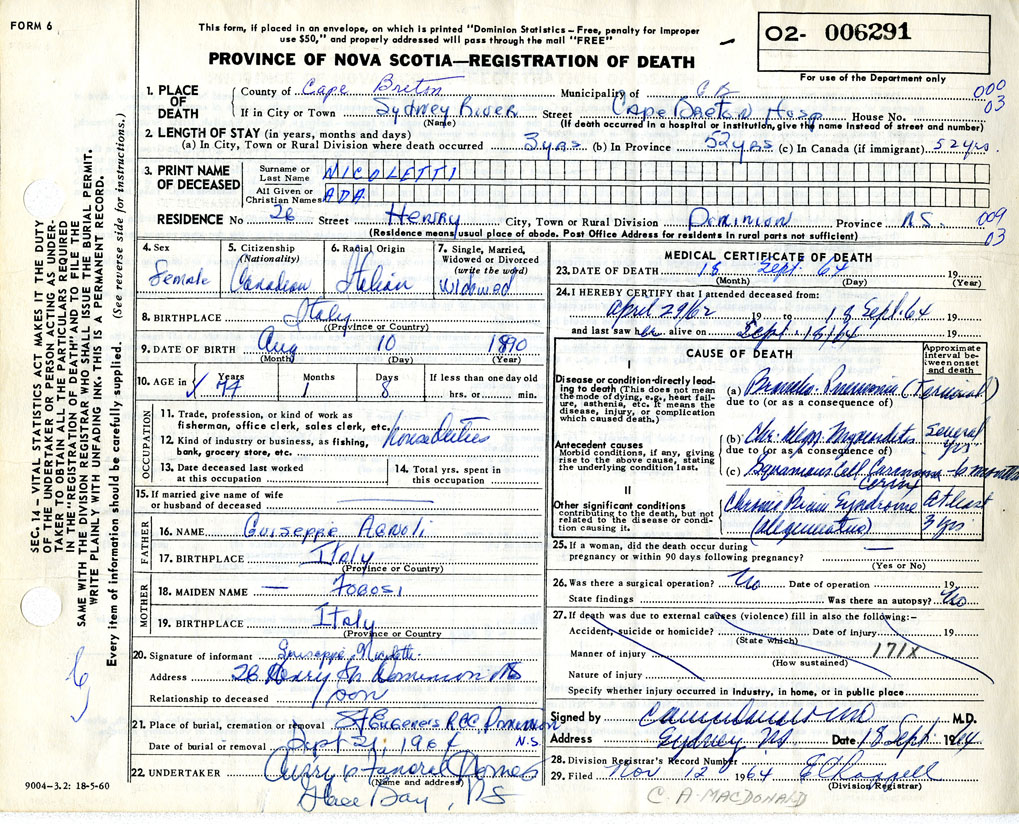 FORM 6
This form, if placed in an envelope, on which is printed "Dominion Statistics – Free, penalty for improper
use $50," and properly addressed will pass through the mail "FREE"
02- 006291
For use of the Department only
PROVINCE OF NOVA SCOTIA—REGISTRATION OF DEATH
1. PLACE OF DEATH
County of Cape Breton Municipality of C B 000
If in City or Town Sydney River Street Cape Breton Hosp House No. 03
(Name) (If death occurred in a hospital or institution, give the name instead of street and number)
2. LENGTH OF STAY (in years, months and days)
(a) In City, Town or Rural Division where death occurred 3 yrs (b) In Province 52 yrs (c) In Canada (if immigrant) 52 yrs.
3. PRINT NAME OF DECEASED
Surname or Last Name NICOLETTI
All Given or Christian Names ADA
RESIDENCE No 26 Street Henry City, Town or Rural Division Dominion Province N.S. 009
03
(Residence means usual place of abode. Post Office Address for residents in rural parts not sufficient)
4. Sex 5. Citizenship (Nationality) 6. Racial Origin 7. Single, Married, Widowed or Divorced (write the word)
Female Canadian Italian Widowed
8. BIRTHPLACE Italy
(Province or Country)
9. DATE OF BIRTH Aug 10 1890
(Month) (Day) (Year)
10. AGE in Years Months Days If less than one day old
74 1 8 hrs. or min.
OCCUPATION
11. Trade, profession, or kind of work as
fisherman, office clerk, sales clerk, etc.
House Duties
12. Kind of industry or business, as fishing,
bank, grocery store, etc.
13. Date deceased last worked
at this occupation
14. Total yrs. spent in
this occupation
15. If married give name of wife
or husband of deceased
FATHER
16. NAME Guiseppe
17. BIRTHPLACE Italy
(Province or Country)
MOTHER
18. MAIDEN NAME — Fogosi
19. BIRTHPLACE Italy
(Province or Country
20. Signature of informant Guiseppe Nicoletti
Address 26 Henry St Dominion NS
Relationship to deceased son
21. Place of burial, cremation or removal St Eugene's RCC Dominion
N.S.
Date of burial or removal Sept 21, 1964
22. UNDERTAKER Curry's Funeral Homes
(Name and address)
Glace Bay, NS
9004-3.2: 18-5-60
MEDICAL CERTIFICATE OF DEATH
23. DATE OF DEATH 18 Sept. 64 19
(Month) (Day) (Year)
24. I HEREBY CERTIFY that I attended deceased from:
April 29/62 19 to 18 Sept. 64
and last saw her alive on Sept. 18/64 19
CAUSE OF DEATH
Approximate interval between onset and death
I
Disease or condition directly leading to death (This does not mean the mode of dying, e.g., heart failure, asthenia, etc. It means the disease, injury, or complication which caused death.)
(a) Broncho-Pneumonia (Terminal)
due to (or as a consequence of)
Antecedent causes
Morbid conditions, if any, giving rise to the above cause, stating the underlying condition last.
(b) Chr. Myocarditis Several yrs
due to (or as a consequence of)
(c) Squamous Cell Carcinoma Cervix 6 months
II
Other significant conditions
contributing to the death, but not related to the disease or condition causing it.
Chronic Brain Syndrome At least
3 yrs
25. If a woman, did the death occur during
pregnancy or within 90 days following pregnancy? —
(Yes or No)
26. Was there a surgical operation? No Date of operation 19
State findings Was there an autopsy? No
27. If death was due to external causes (violence) fill in also the following:–
Accident, suicide or homicide? Date of injury 19
(State which)
Manner of injury 171X
(How sustained)
Nature of injury
Specify whether injury occurred in industry, in home, or in public place
Signed by M.D.
Address Sydney NS Date 18 Sept. 1964
28. Division Registrar's Record Number
29. Filed Nov 12 1964
(Division Registrar)
C. A. MACDONALD
SEC. 14 – VITAL STATISTICS ACT MAKES IT THE DUTY
OF THE UNDERTAKER OR PERSON ACTING AS UNDER-
TAKER TO OBTAIN ALL THE PARTICULARS REQUIRED
IN THE "REGISTRATION OF DEATH" AND TO FILE THE
SAME WITH THE DIVISION REGISTRAR WHO SHALL ISSUE THE BURIAL PERMIT.
WRITE PLAINLY WITH UNFADING INK. THIS IS A PERMANENT RECORD.
Every item of information should be carefully supplied. (See reverse side for instructions.)